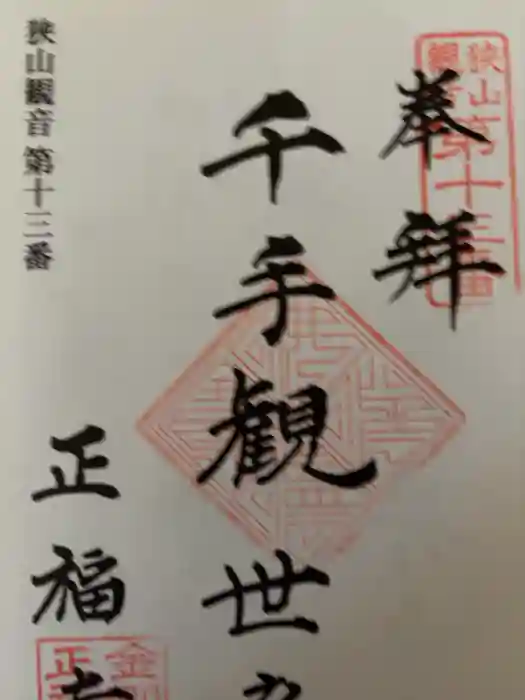 奉拝
狭山
観音
第十三番
千手観世
正福寺
狭山観音 第十三番